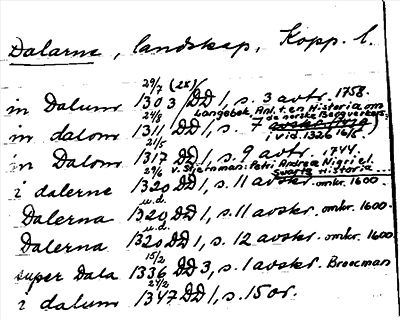 Dalarne, landskap, Kopp. l.
29/7 (2x)
in Dalum 1303 DD 1, s. 3 avskr. 1758.
Langebek, Anl. t. en Historia om
24/8 de norske Bergverker
in dalom 1311 DD 1, s. 7
i vid. 1326 16/5)
21/5
in Dalom 1317 DD 1, s. 9 avskr. 1744.
29/6 v. Stiernman: Petri Andreæ Nigri el.
Svarts historia
i dalerne 1320 DD 1, s. 11 avskr. omkr. 1600.
u.d.
Dalerna 1320 DD 1, s. 11 avskr. omkr. 1600.
u.d.
Dalerna 1320 DD 1, s. 12 avskr. omkr. 1600
15/2
super Dala 1336 DD 3, s. 1 avskr. Brocman
24/2
i dalum 1347 DD 1, s. 15 or.